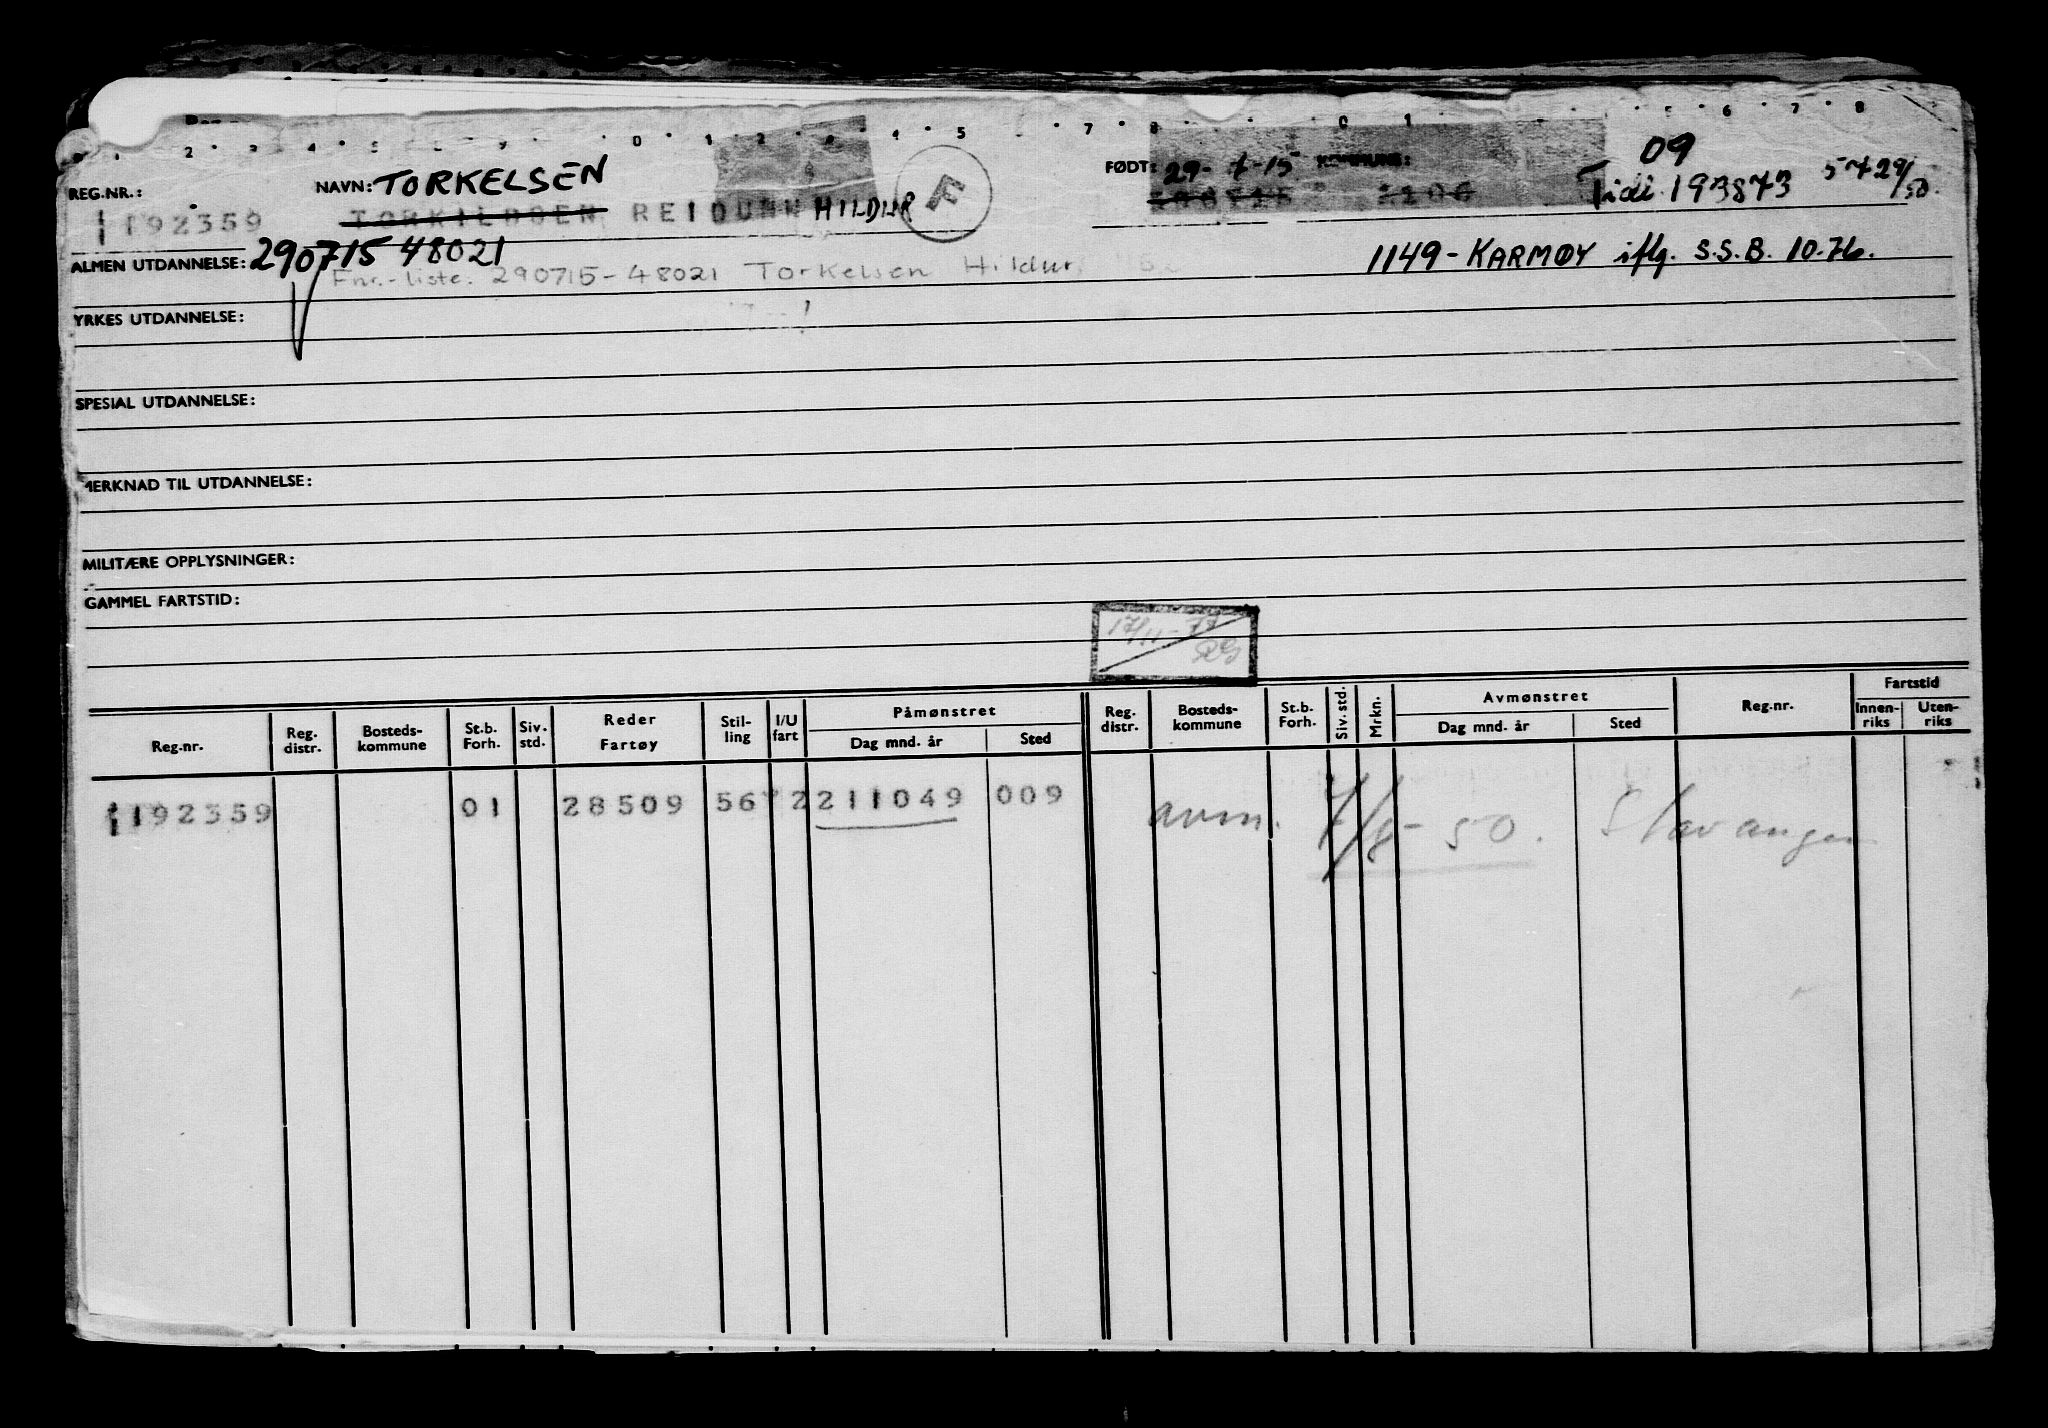 09
REG.NR.: NAVN: TORKELSEN FØDT: 29-7-15 KOMMUNE: Tidl. 193873
192359 TORKILDSEN REIDUNN HILDUR E
ALMEN UTDANNELSE: 290715 48021 1149-KARMØY iflg. S.S.B. 10.76.
Fnr.-liste: 290715-48021 Torkelsen Hildur
YRKES UTDANNELSE:
SPESIAL UTDANNELSE:
MERKNAD TIL UTDANNELSE:
MILITÆRE OPPLYSNINGER:
GAMMEL FARTSTID:
17/11-77
Reg.nr. Reg. distr. Bosteds-kommune St.b. Forh. Siv. std. Reder Fartøy Stil-ling I/U fart Påmønstret Dag mnd. år Sted Reg. distr. Bosteds-kommune St.b. Forh. Siv. std. Mrkn. Avmønstret Dag mnd. år Sted Reg.nr. Fartstid Innen-riks Uten-riks
192359 01 28509 56 2 211049 009 avm. 7/8-50. Stavanger